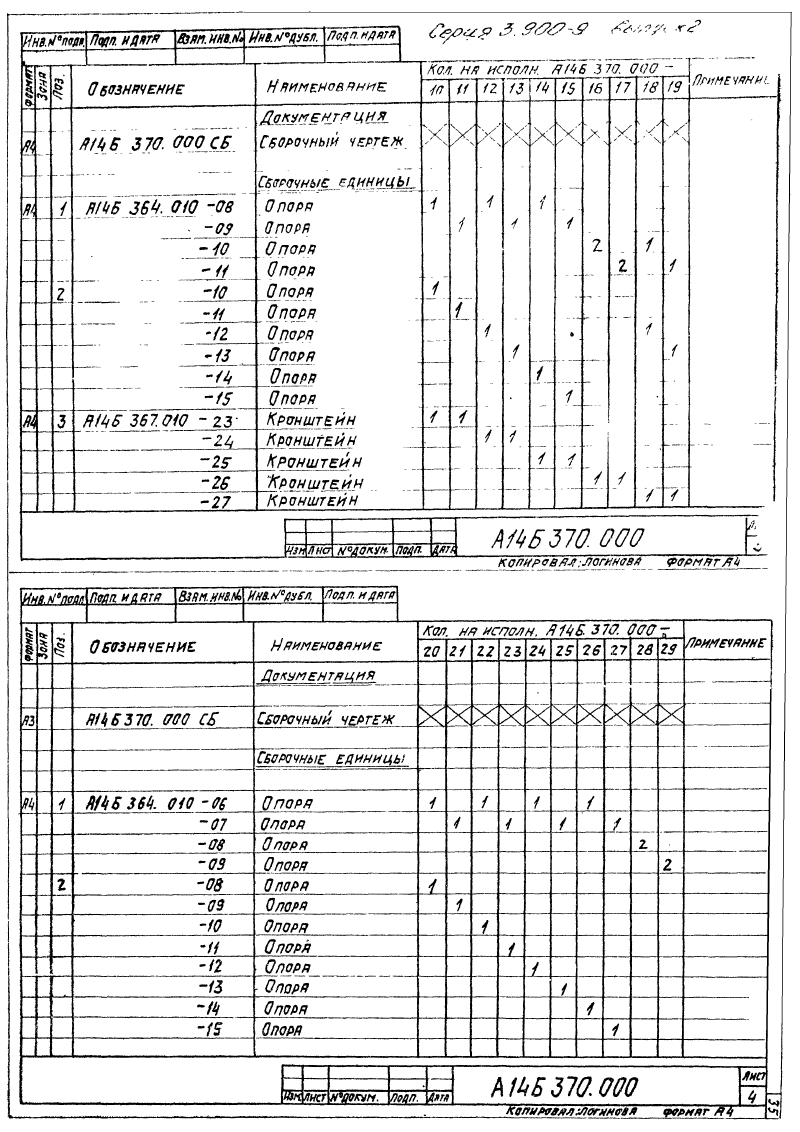 Серия 3.900-9 Выпуск 2
Инв.№подл. Подп. и дата Взам.инв.№ Инв.№дубл. Подп. и дата
Формат Зона Поз. Обозначение Наименование Кол. на исполн. А14Б 370.000 – Примечание
10 11 12 13 14 15 16 17 18 19
Документация
А4 А14Б 370.000 СБ Сборочный чертеж
Сборочные единицы
А4 1 А14Б 364.010 -08 Опора 1 1 1
-09 Опора 1 1 1
-10 Опора 2 1
-11 Опора 2 1
2 -10 Опора 1
-11 Опора 1
-12 Опора 1 1
-13 Опора 1 1
-14 Опора 1
-15 Опора 1
А4 3 А14Б 367.010 -23 Кронштейн 1 1
-24 Кронштейн 1 1
-25 Кронштейн 1 1
-26 Кронштейн 1 1
-27 Кронштейн 1 1
А14Б 370.000
Изм Лист №докум. Подп. Дата
Копировал: Логинова Формат А4
Инв.№подл. Подп. и дата Взам.инв.№ Инв.№дубл. Подп. и дата
Формат Зона Поз. Обозначение Наименование Кол. на исполн. А14Б 370.000 – Примечание
20 21 22 23 24 25 26 27 28 29
Документация
А3 А14Б 370.000 СБ Сборочный чертеж
Сборочные единицы
А4 1 А14Б 364.010 -06 Опора 1 1 1 1
-07 Опора 1 1 1 1
-08 Опора 2
-09 Опора 2
2 -08 Опора 1
-09 Опора 1
-10 Опора 1
-11 Опора 1
-12 Опора 1
-13 Опора 1
-14 Опора 1
-15 Опора 1
А14Б 370.000 Лист 4
Изм Лист №докум. Подп. Дата
Копировал: Логинова Формат А4
35